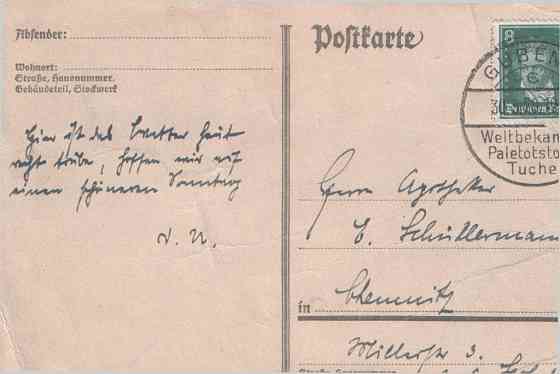 Absender:
Wohnort:
Straße, Hausnummer,
Gebäudeteil, Stockwerk
Hier ist das Wetter heut
recht trübe, hoffen wir auf
einen schöneren Sonntag
D. U.
Postkarte
8
GUBEN
30
Deutsches
Weltbekan
Paletotsto
Tuche
Herrn Apotheker
E. Schüllermann
in Chemnitz
Müllerstr. 3.